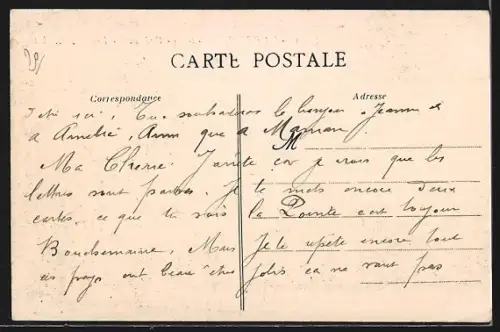 CARTE POSTALE
Correspondance
Adresse
Tu souhaiteras le bonjour à Jeanne et
à Amélie, que à Maman.
Ma Chérie. J'arrête car je crois que les
lettres sont Je te mets encore deux
cartes, ce que tu vois la Pointe est toujours
Bouchemaine, Mais Je te répète encore tout
ont beau être jolis ça ne vaut pas